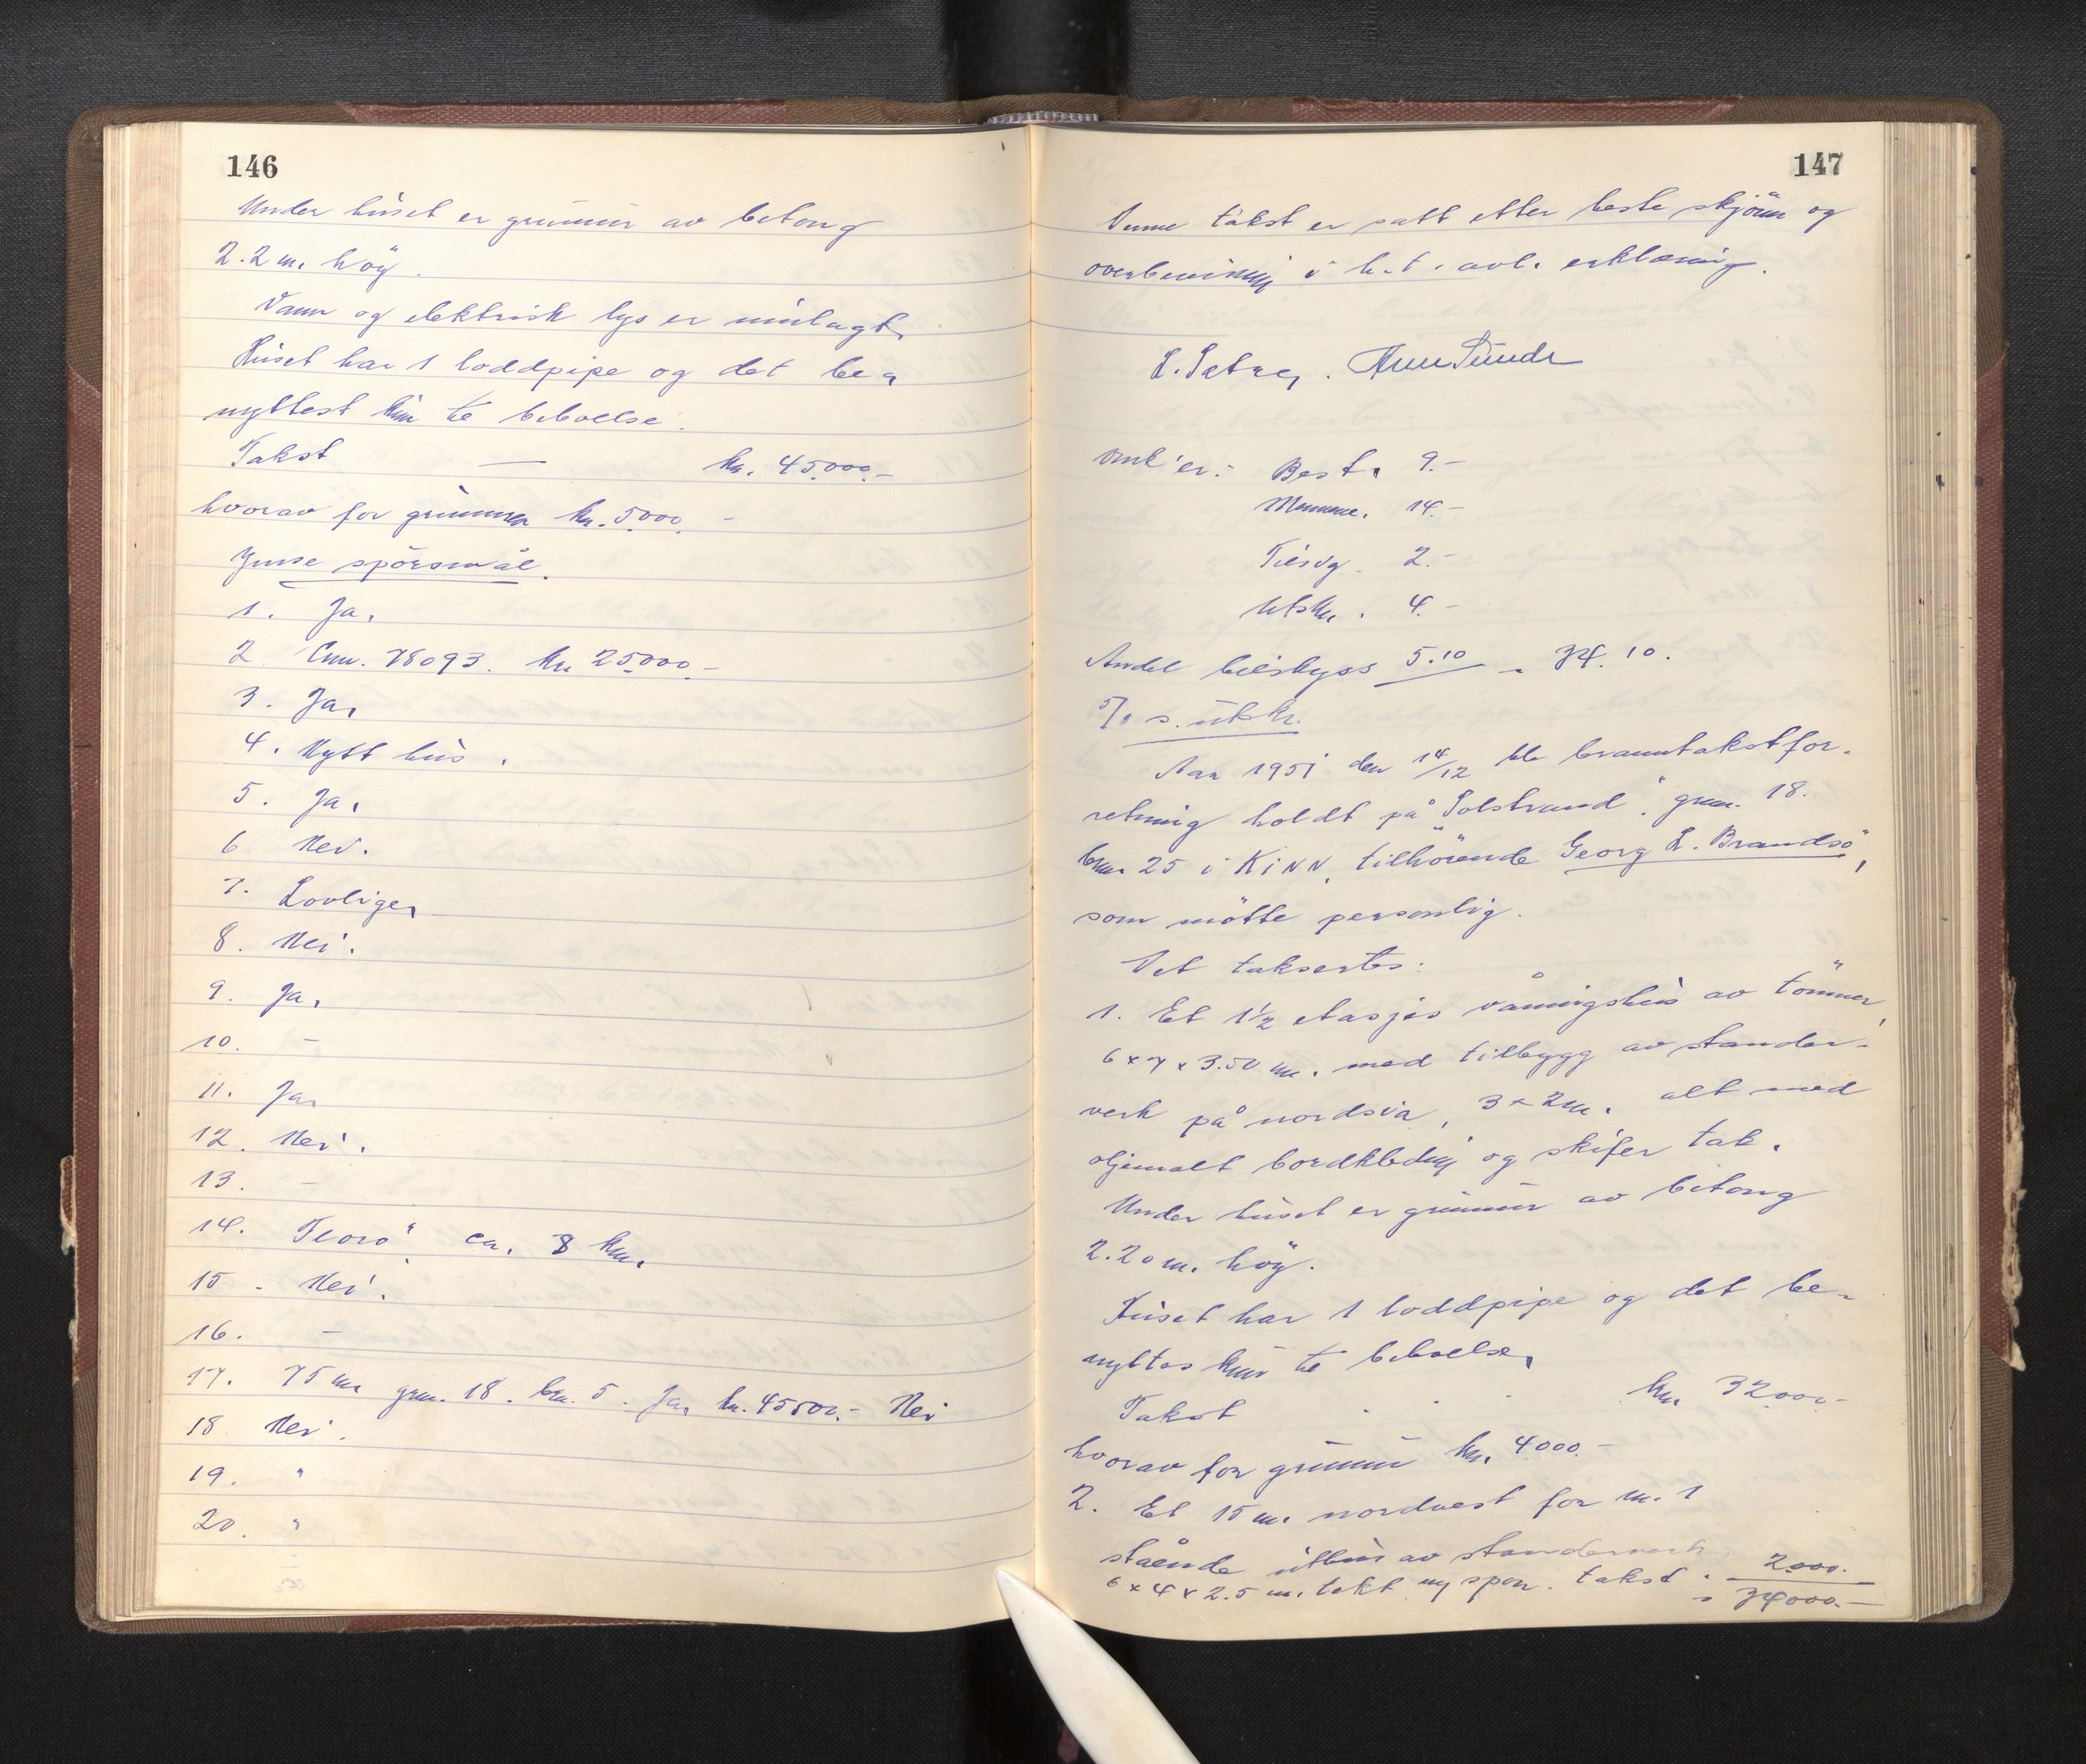 146
Under huset er grunmur av betong
2.2 m. höy.
Vann og elektrisk lys er innlagt,
Huset har 1 loddpipe og det be-
nyttest kun til beboelse.
Takst — kr. 45000.-
hvorav for grunmur kr. 5000.-
Jmse spörsmål.
1. Ja,
2 Cnr. 78093. kr 25000.-
3. Ja,
4. Nytt hus.
5. Ja,
6 Nei.
7. Lovlige,
8. Nei.
9. Ja,
10. -
11. Ja,
12. Nei.
13. -
14. ca. 8 km.
15 - Nei.
16. -
17. 75 m gnr. 18. bnr. 5. Ja, kr. 45500.- Nei
18 Nei.
19. "
20. "
147
Denne takst er satt etter beste skjönn og
overbevisning i h.t. avl. erklæring.
L. Sætre,
Omk'er:- Best. 9.-
14.-
2.-
Utskr. 4.-
Andel bilskyss 5.10 - 34.10.
s. utskr.
Aar 1951 den 14/12 ble branntakstfor-
retning holdt på "Solstrand", gnr. 18.
bnr 25 i KINN, tilhörende Georg L. Brandsö,
som mötte personlig.
Det taksertes:
1. Et 1½ etasjes våningshus av tömmer,
6 x 7 x 3.50 m. med tilbygg av stender-
verk på nordsia, 3 x 2 m. alt med
oljemalt bordkledning og skifer tak.
Under huset er grunmur av betong
2.20 m. höy.
Huset har 1 loddpipe og det be-
nyttes kun til beboelse,
Takst kr. 32000.-
hvorav for grunmur kr. 4000.-
2. Et 15 m. nordvest for nr. 1
stående uthus av stenderverk,
6 x 4 x 2.5 m. tekt m/spon. takst " 2000.-
" 34000.-